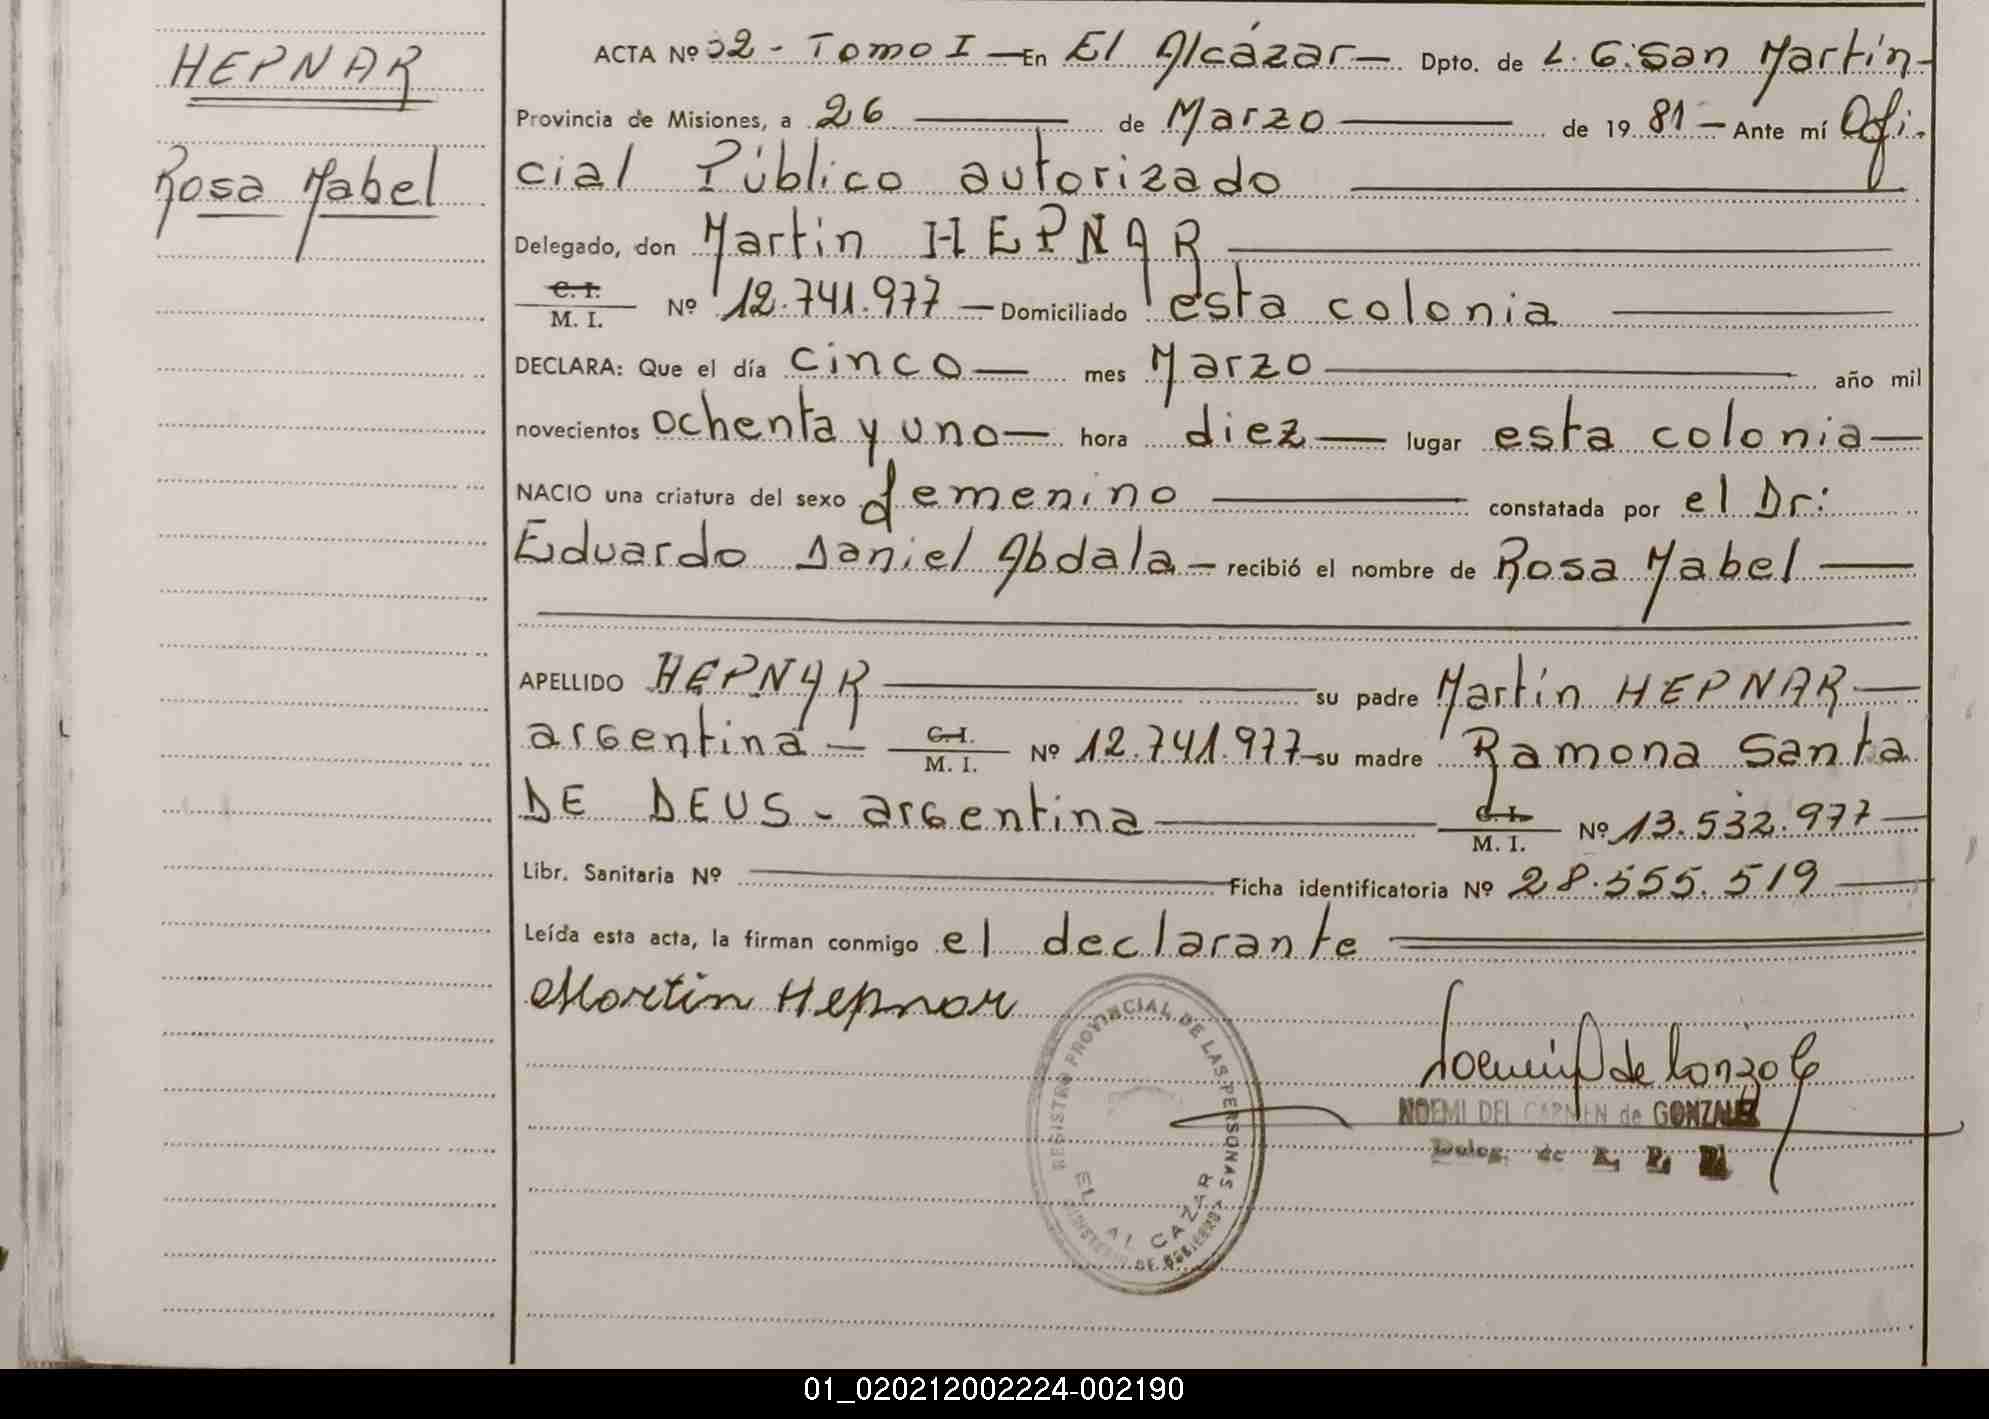 HEPNAR
Rosa Mabel
ACTA Nº 32 - Tomo I — En El Alcázar — Dpto. de L. G. San Martín -
Provincia de Misiones, a 26 — de Marzo — de 1981 — Ante mí Ofi-
cial Público autorizado
Delegado, don Martin HEPNAR
C. I. / M. I. Nº 12.741.977 — Domiciliado esta colonia
DECLARA: Que el día cinco — mes Marzo — año mil
novecientos ochenta y uno — hora diez — lugar esta colonia —
NACIO una criatura del sexo femenino — constatada por el Dr:
Eduardo Daniel Abdala — recibió el nombre de Rosa Mabel —
APELLIDO HEPNAR — su padre Martín HEPNAR —
argentina — C. I. / M. I. Nº 12.741.977 — su madre Ramona Santa
DE DEUS - argentina — C. I. / M. I. Nº 13.532.977 —
Libr. Sanitaria Nº — Ficha identificatoria Nº 28.555.519 —
Leída esta acta, la firman conmigo el declarante
Martin Hepnar
REGISTRO PROVINCIAL DE LAS PERSONAS
EL ALCAZAR
MINISTERIO DE GOBIERNO
NOEMI DEL CARMEN de GONZALEZ
Deleg. de R. P. P.
01_020212002224-002190